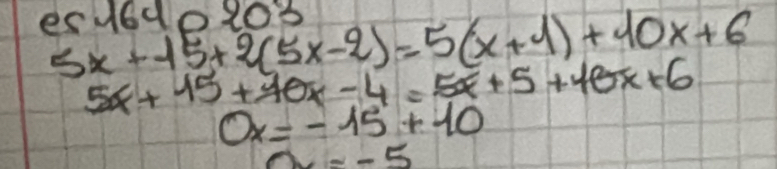 es 164 p 203
5x + 15 + 2(5x - 2) = 5(x + 1) + 10x + 6
5x + 15 + 10x - 4 = 5x + 5 + 10x + 6
0x = - 15 + 10
0x = - 5